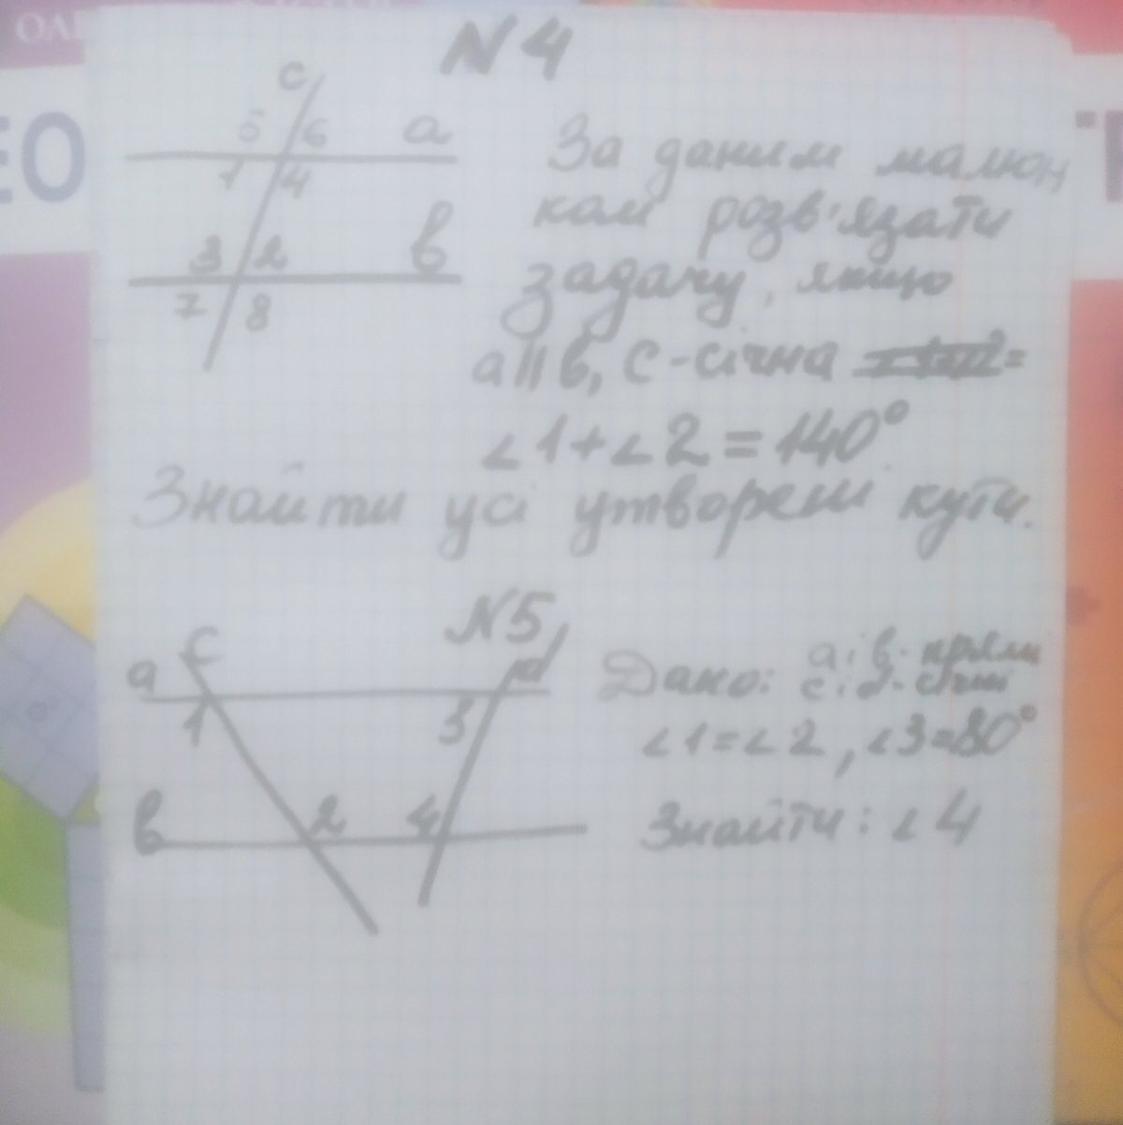 N4
c
5 6 a
1 4
3 2 в
7 8
За даним малюн
ком розв'язати
задачу, якщо
a||в, с-січна
∠1+∠2=140°
Знайти усі утворені кути.
N5
a c d
1 3
в 2 4
Дано: a і в - прямі
c і d - січні
∠1=∠2, ∠3=80°
Знайти: ∠4